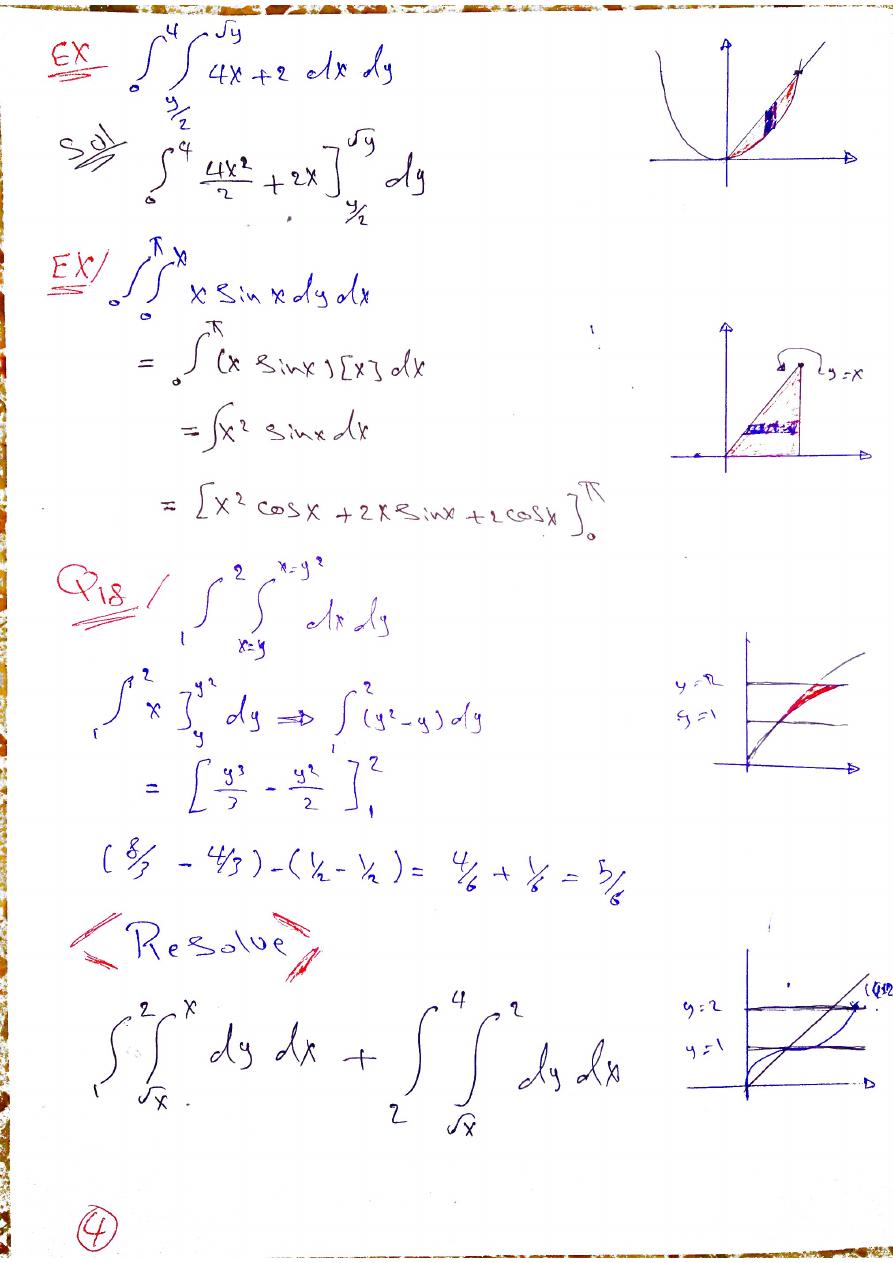 EX ∫₀⁴ ∫_{y/2}^{√y} 4x + 2 dx dy
Sol ∫₀⁴ 4x²/2 + 2x ]_{y/2}^{√y} dy
EX/ ∫₀^π ∫₀^x x sin x dy dx
= ∫₀^π (x sinx) [x] dx
= ∫x² sinx dx
= [x² cosx + 2x sinx + 2cosx]₀^π
y=x
Q18 / ∫₁² ∫_{x=y}^{x=y²} dx dy
∫₁² x ]_y^{y²} dy ⇒ ∫₁² (y²-y) dy
= [ y³/3 - y²/2 ]₁²
y=2
y=1
(8/3 - 4/3) - (1/2 - 1/2) = 4/6 + 1/6 = 5/6
<Resolve>
∫₁² ∫_{√x}^x dy dx + ∫₂⁴ ∫_{√x}^2 dy dx
y=2
y=1
4